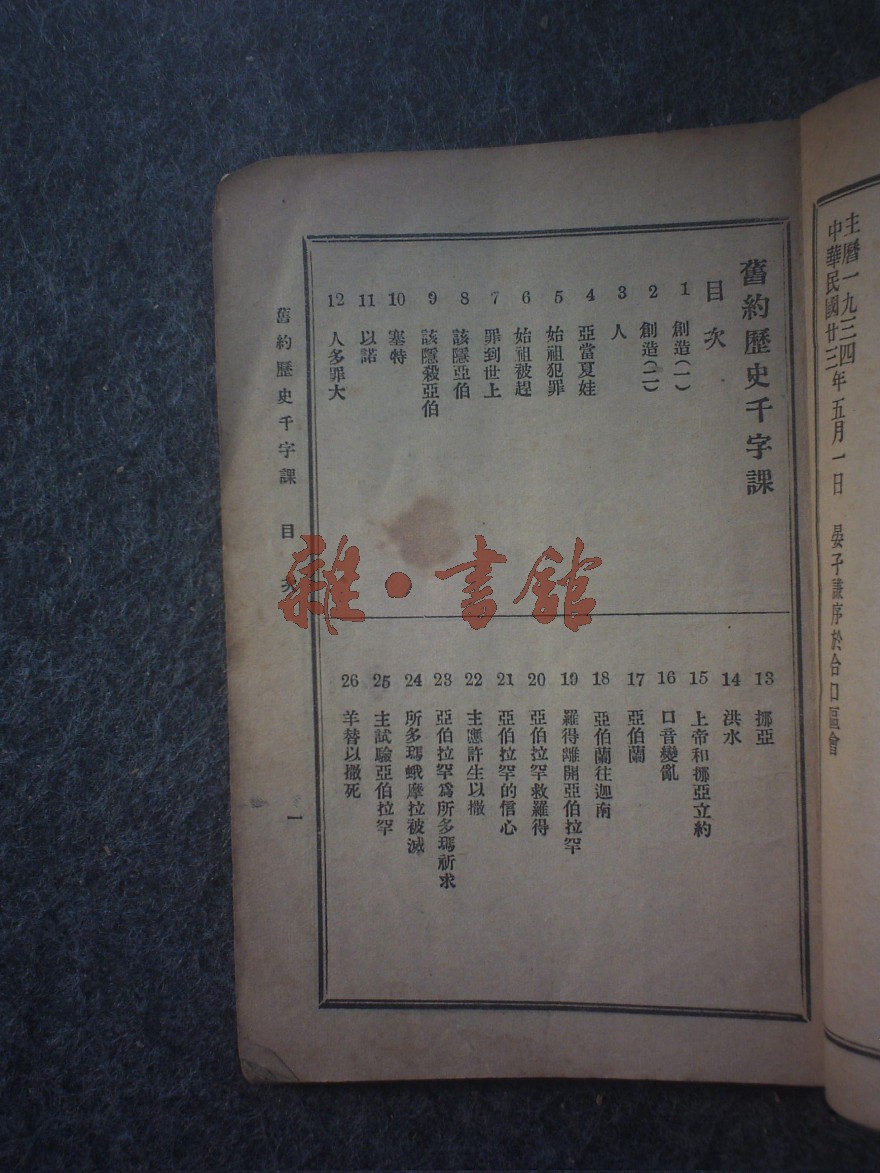 主曆一九三四年五月一日 晏子謙序於合口區會
中華民國廿三
舊約歷史千字課
目次
1 創造(一)
2 創造(二)
3 人
4 亞當夏娃
5 始祖犯罪
6 始祖被趕
7 罪到世上
8 該隱亞伯
9 該隱殺亞伯
10 塞特
11 以諾
12 人多罪大
13 挪亞
14 洪水
15 上帝和挪亞立約
16 口音變亂
17 亞伯蘭
18 亞伯蘭往迦南
19 羅得離開亞伯拉罕
20 亞伯拉罕救羅得
21 亞伯拉罕的信心
22 主應許生以撒
23 亞伯拉罕爲所多瑪祈求
24 所多瑪蛾摩拉被滅
25 主試驗亞伯拉罕
26 羊替以撒死
舊約歷史千字課 目次
一
雜·書館